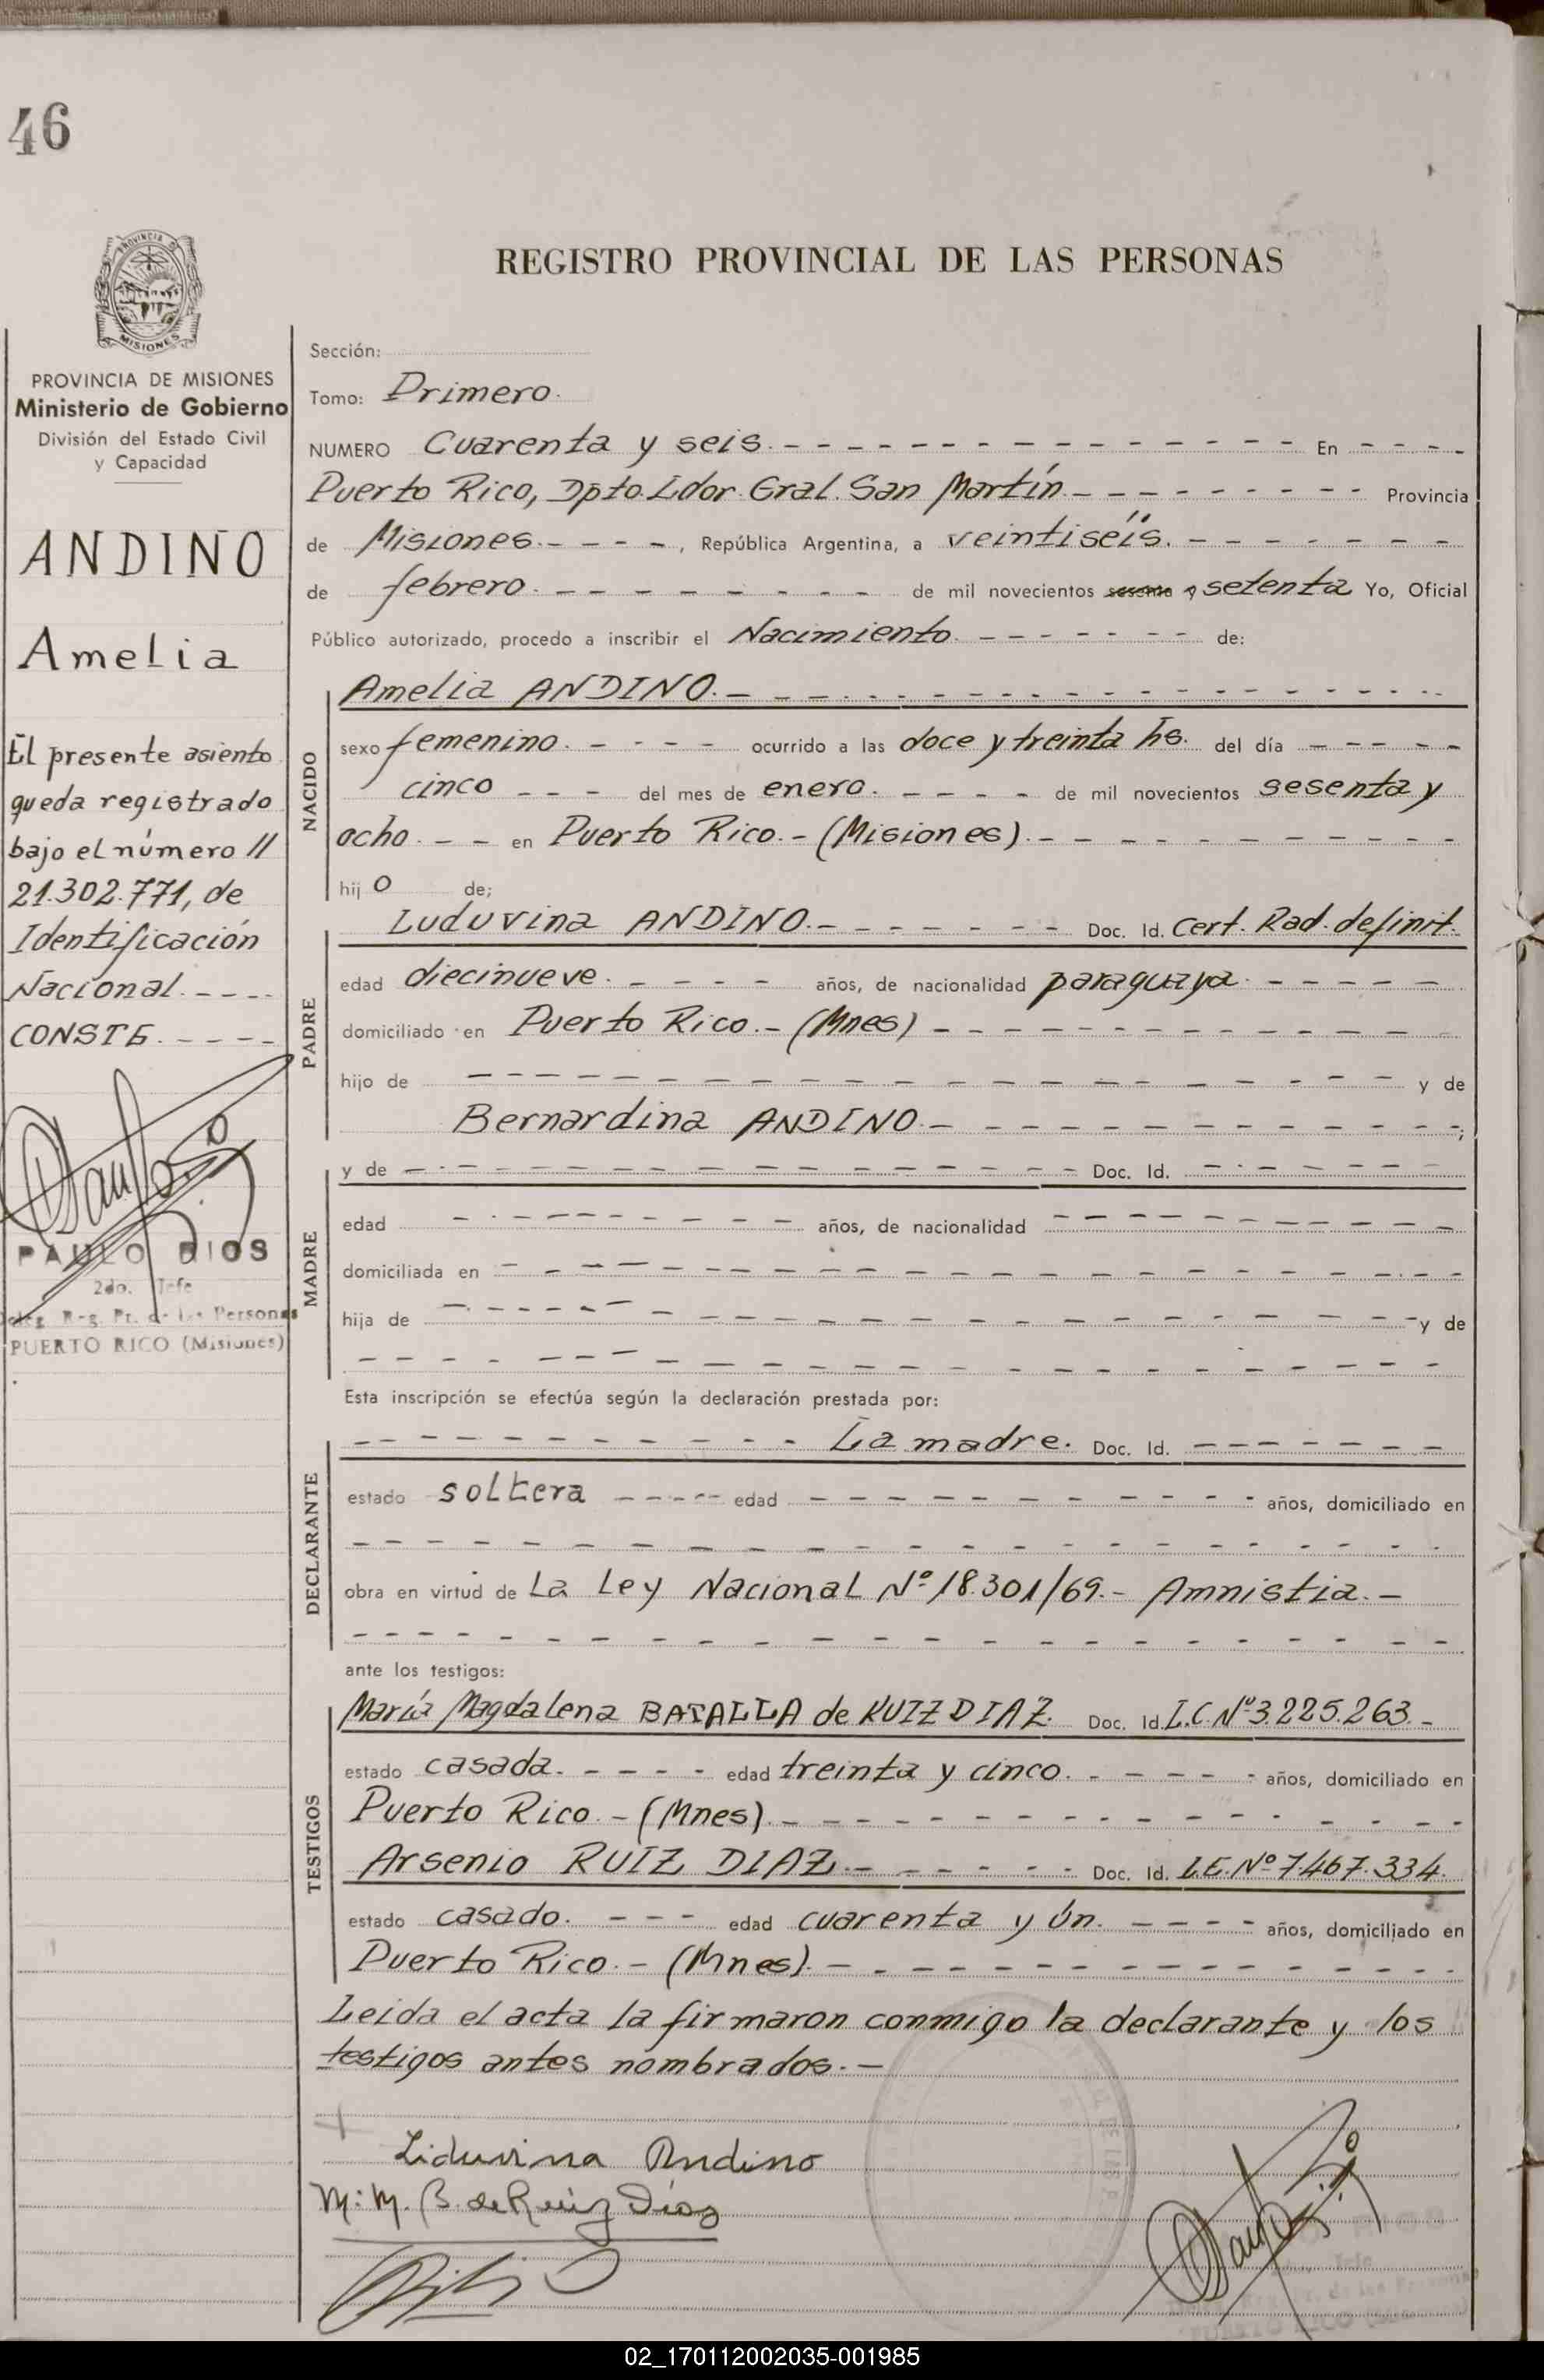 46
PROVINCIA DE
MISIONES
PROVINCIA DE MISIONES
Ministerio de Gobierno
División del Estado Civil
y Capacidad
ANDINO
Amelia
El presente asiento
queda registrado
bajo el número //
21.302.771, de
Identificación
Nacional.----
CONSTE.----
PAULO RIOS
2do. Jefe
Deleg. Reg. Pr. de las Personas
PUERTO RICO (Misiones)
REGISTRO PROVINCIAL DE LAS PERSONAS
Sección:
Tomo: Primero.
NUMERO Cuarenta y seis.- - - - En - - - -
Puerto Rico, Dpto. Ldor. Gral. San Martín.- - - - Provincia
de Misiones.- - - -, República Argentina, a veintiséis.- - - -
de febrero.- - - - de mil novecientos sesenta y setenta Yo, Oficial
Público autorizado, procedo a inscribir el Nacimiento.- - - - de:
NACIDO
Amelia ANDINO.- - - -
sexo femenino.- - - - ocurrido a las doce y treinta hs. del día - - - -
cinco - - - del mes de enero.- - - - de mil novecientos sesenta y
ocho.- - en Puerto Rico.- (Misiones).- - - -
hij o de;
PADRE
Luduvina ANDINO.- - - - Doc. Id. Cert. Rad. definit.
edad diecinueve.- - - - años, de nacionalidad paraguaya.- - - -
domiciliado en Puerto Rico.- (Mnes) - - - -
hijo de - - - - y de
Bernardina ANDINO.- - - -;
MADRE
y de - - - - Doc. Id. - - - -
edad - - - - años, de nacionalidad - - - -
domiciliada en - - - -
hija de - - - - y de
- - - -
Esta inscripción se efectúa según la declaración prestada por:
DECLARANTE
- - - - La madre. Doc. Id. - - - -
estado soltera - - - - edad - - - - años, domiciliado en
- - - -
obra en virtud de La Ley Nacional Nº 18.301/69.- Amnistia.-
- - - -
ante los testigos:
TESTIGOS
María Magdalena BATALLA de RUIZ DIAZ. Doc. Id. L.C. Nº 3.225.263.-
estado casada.- - - - edad treinta y cinco.- - - - años, domiciliado en
Puerto Rico.- (Mnes).- - - -
Arsenio RUIZ DIAZ.- - - - Doc. Id. L.E. Nº 7.467.334.
estado casado.- - - edad cuarenta y ún.- - - - años, domiciliado en
Puerto Rico.- (Mnes).- - - -
Leida el acta la firmaron conmigo la declarante y los
testigos antes nombrados.-
Liduvina Andino
M. M. B. de Ruiz Diaz
02_170112002035-001985